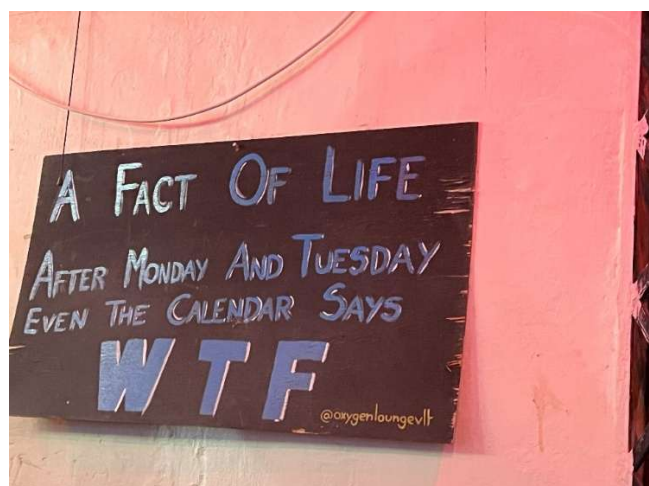 A FACT OF LIFE
AFTER MONDAY AND TUESDAY
EVEN THE CALENDAR SAYS
WTF
@oxygenloungevlt